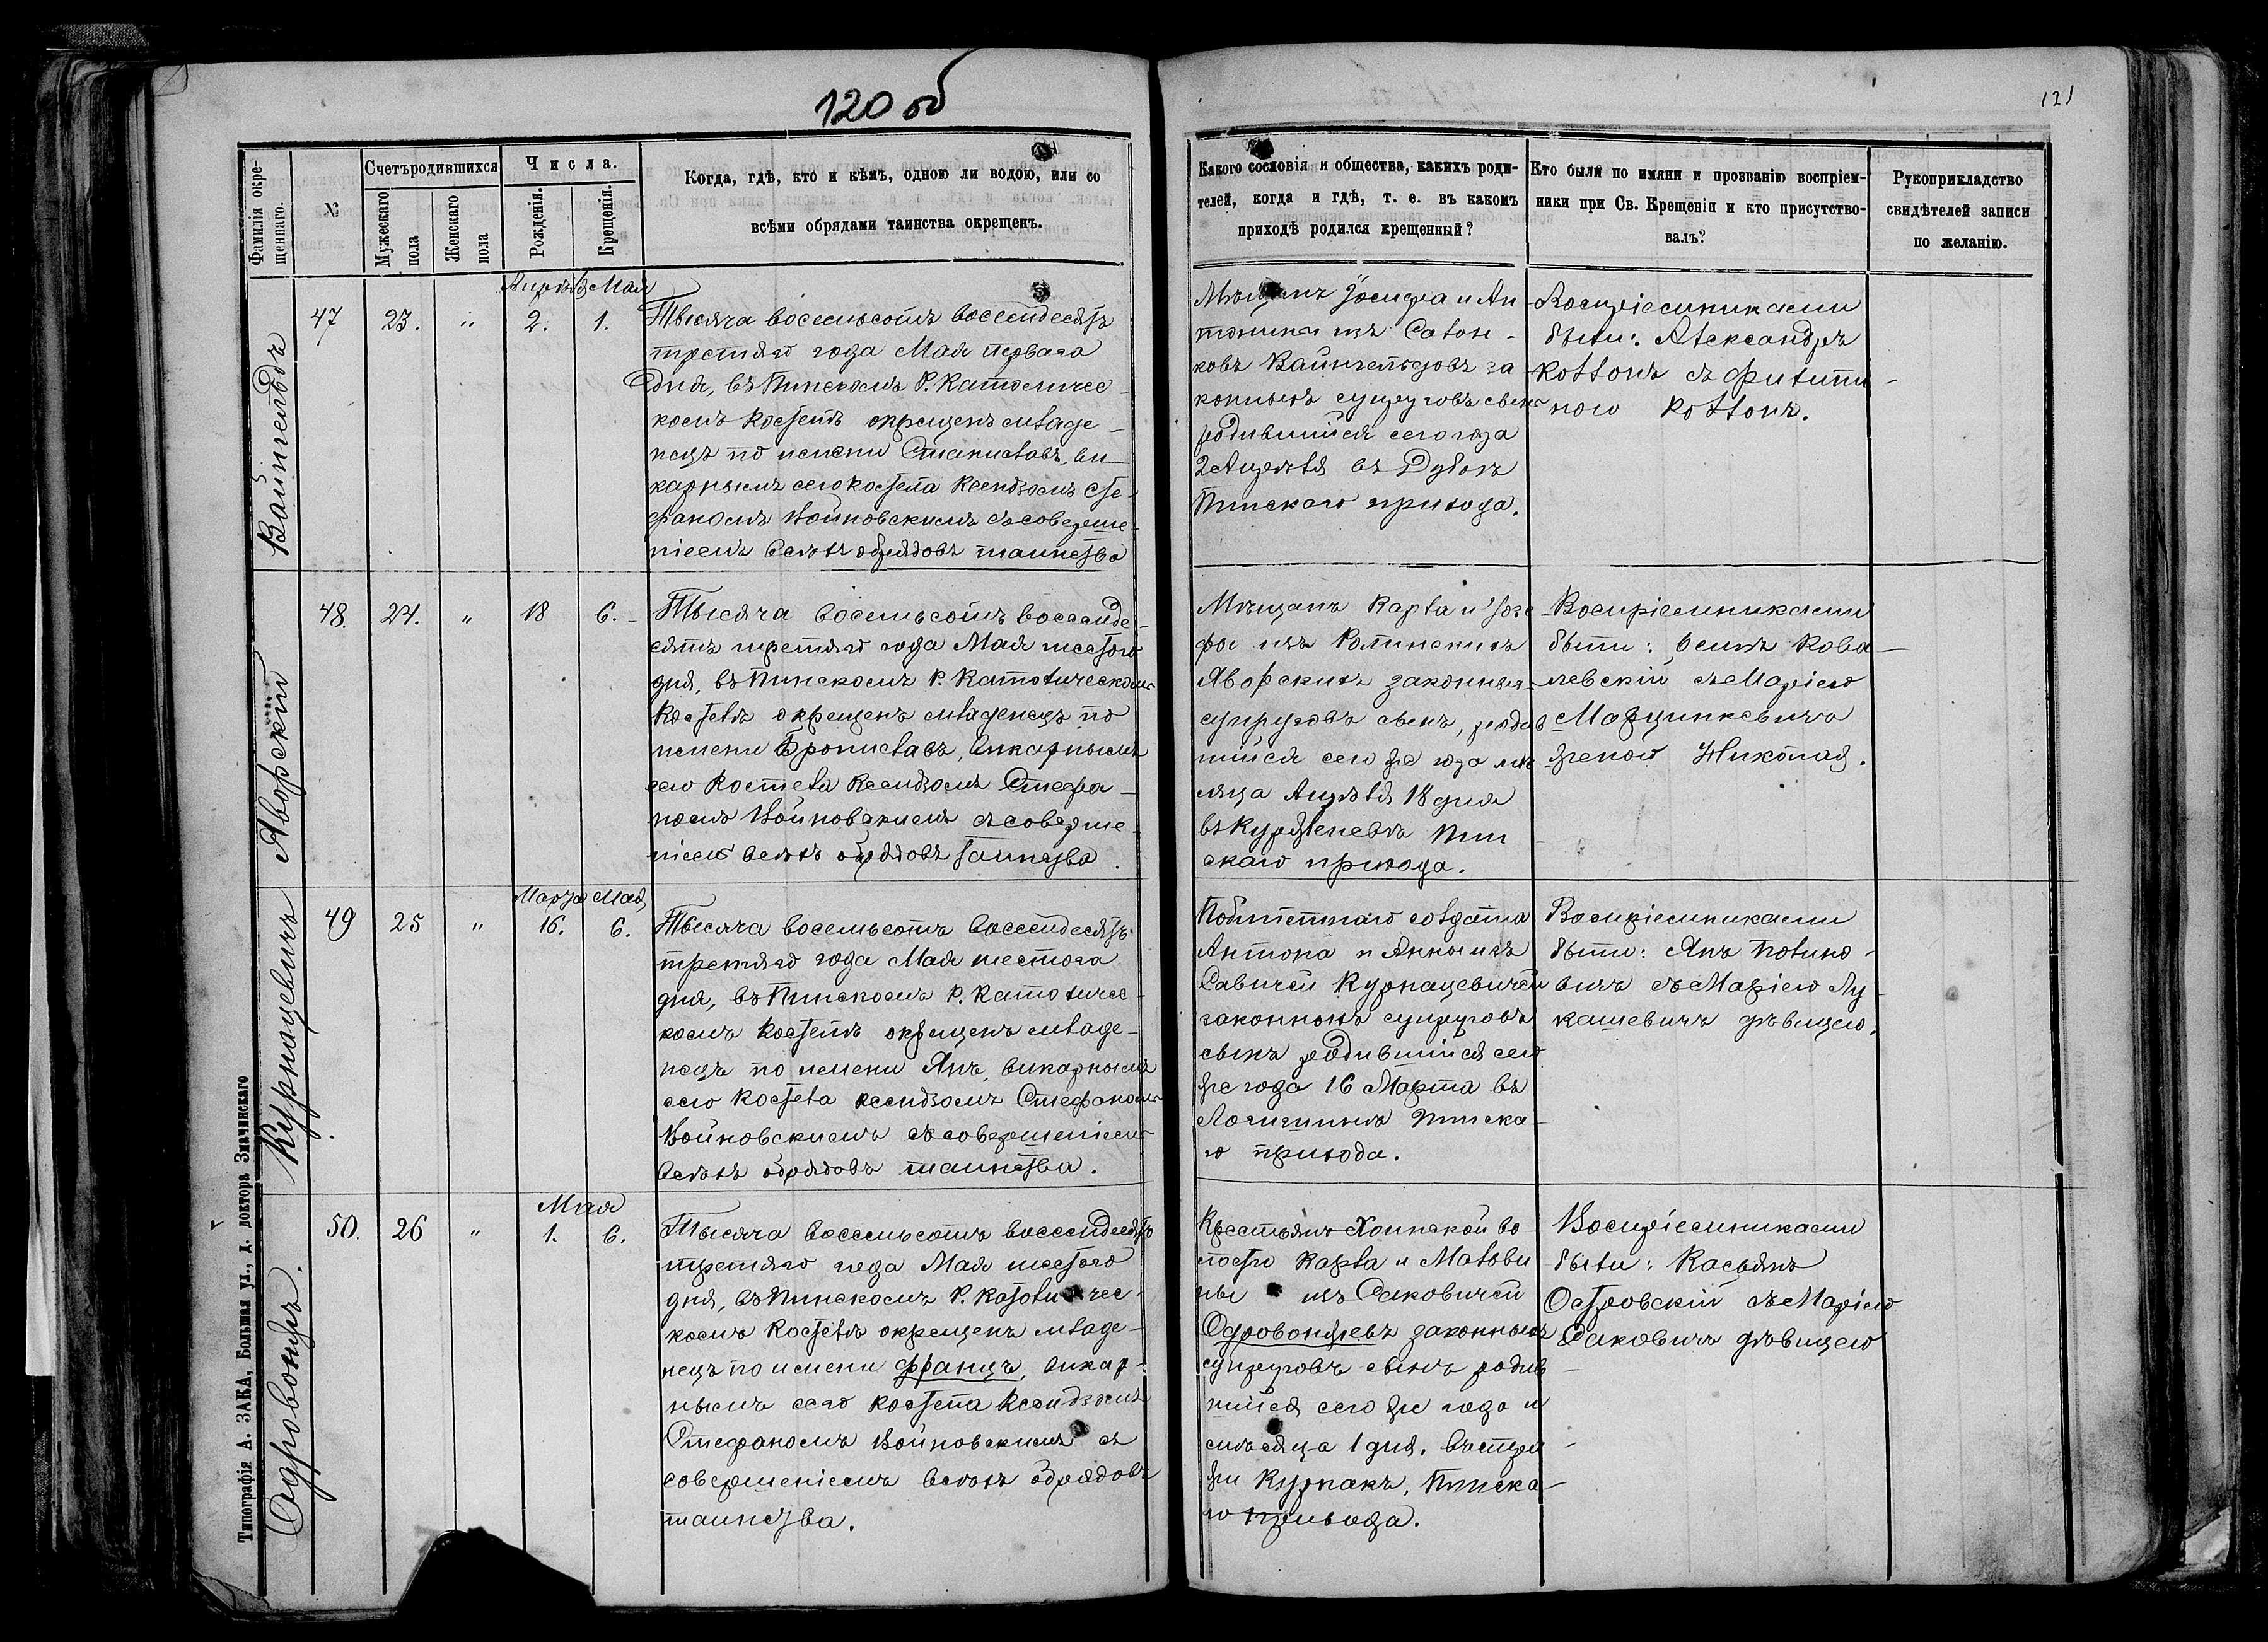 120 об
121
Фамилія окре-
щеннаго.
№
Счетъ родившихся
Мужескаго
пола
Женскаго
пола
Числа.
Рожденія.
Крещенія.
Когда, гдѣ, кто и кѣмъ, одною ли водою, или со
всѣми обрядами таинства окрещенъ.
Какого сословія и общества, какихъ роди-
телей, когда и гдѣ, т. е. въ какомъ
приходѣ родился крещенный?
Кто были по имяни и прозванію воспріем-
ники при Св. Крещенія и кто присутство-
валъ?
Рукоприкладство
свидѣтелей записи
по желанію.
Вайнгельдъ
47
23.
"
Апрѣля
2.
Мая
1.
Тысяча восемьсотъ восемдесятъ
третяго года Мая перваго
дня, въ Пинскомъ Р. Католичес-
комъ Костелѣ окрещенъ младе-
нецъ по имени Станиславъ, ви-
карнымъ сего Костела Ксендзомъ Сте-
фаномъ Войновскимъ съ соверше-
ніемъ всѣхъ обрядовъ таинства
Мѣщанъ Іосифа и Ан
тонины изъ Сахон-
ковъ Вайнгельдовъ за
конныхъ супруговъ сынъ
родившійся сего года
2 Апрѣля въ Дубоѣ
Пинскаго прихода.
Воспріемниками
были: Александръ
Коллонъ съ Филипи-
ною Коллонъ.
Яворскій
48.
24.
"
18
6.
Тысяча восемьсотъ восемде-
сятъ третяго года Мая шестого
дня, въ Пинскомъ Р. Католическомъ
Костелѣ окрещенъ младенецъ по
имени Брониславъ, викарнымъ
сего Костела Ксендзомъ Стефа-
номъ Войновскимъ съ соверше-
ніемъ всѣхъ обрядовъ таинства.
Мѣщанъ Карла и Іозе
фы изъ
Яворскихъ законныхъ
супруговъ сынъ, родив
шійся сего же года мѣ
сяца Апрѣля 18 дня
въ Пин
скаго прихода.
Воспріемниками
были: Осипъ Кова-
левскій съ Маріею
Марцинкевичъ
женою Николая.
Курнацевичъ
49
25
"
Марта
16.
Мая
6.
Тысяча восемьсотъ восемдесятъ
третяго года Мая шестого
дня, въ Пинскомъ Р. Католичес-
комъ Костелѣ окрещенъ младе-
нецъ по имени Янъ, викарнымъ
сего Костела Ксендзомъ Стефаномъ
Войновскимъ съ совершеніемъ
всѣхъ обрядовъ таинства.
солдата
Антона и Анны изъ
Савичей Курнацевичей
законныхъ супруговъ
сынъ родившійся сего
же года 16 Марта въ
Логишинѣ Пинска-
го прихода.
Воспріемниками
были: Янъ Новино-
вичъ съ Маріею Лу-
кашевичъ дѣвицею.
Одровонжъ.
50.
26
"
Мая
1.
6.
Тысяча восемьсотъ восемдесятъ
третяго года Мая шестого
дня, въ Пинскомъ Р. Католичес-
комъ Костелѣ окрещенъ младе-
нецъ по имени Францъ, викар-
нымъ сего Костела Ксендзомъ
Стефаномъ Войновскимъ съ
совершеніемъ всѣхъ обрядовъ
таинства.
Крестьянъ Хоинской во
лости Карла и Мальви
ны изъ Саковичей
Одровонжевъ законныхъ
супруговъ сынъ родив
шійся сего же года и
мѣсяца 1 дня, въ стра
жи Курнакъ, Пинска-
го прихода.
Воспріемниками
были: Касьянъ
Островскій съ Маріею
Саковичъ дѣвицею
Типографія А. ЗАКА, Большая ул., д. доктора Значинскаго